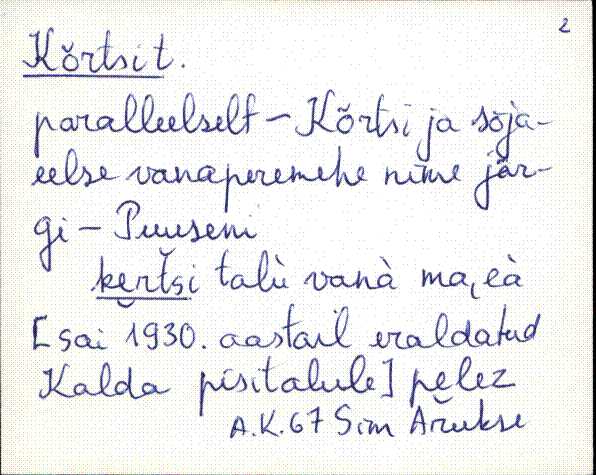 2
Kõrtsi t.
paralleelselt – Kõrtsi ja sõja-
eelse vanaperemehe nime jär-
gi – Puuseni
kertsi talù vanà ma, eà
[sai 1930. aastail eraldatud
Kalda pisitalule] pelez
A.K. 67 Sim Ärukse